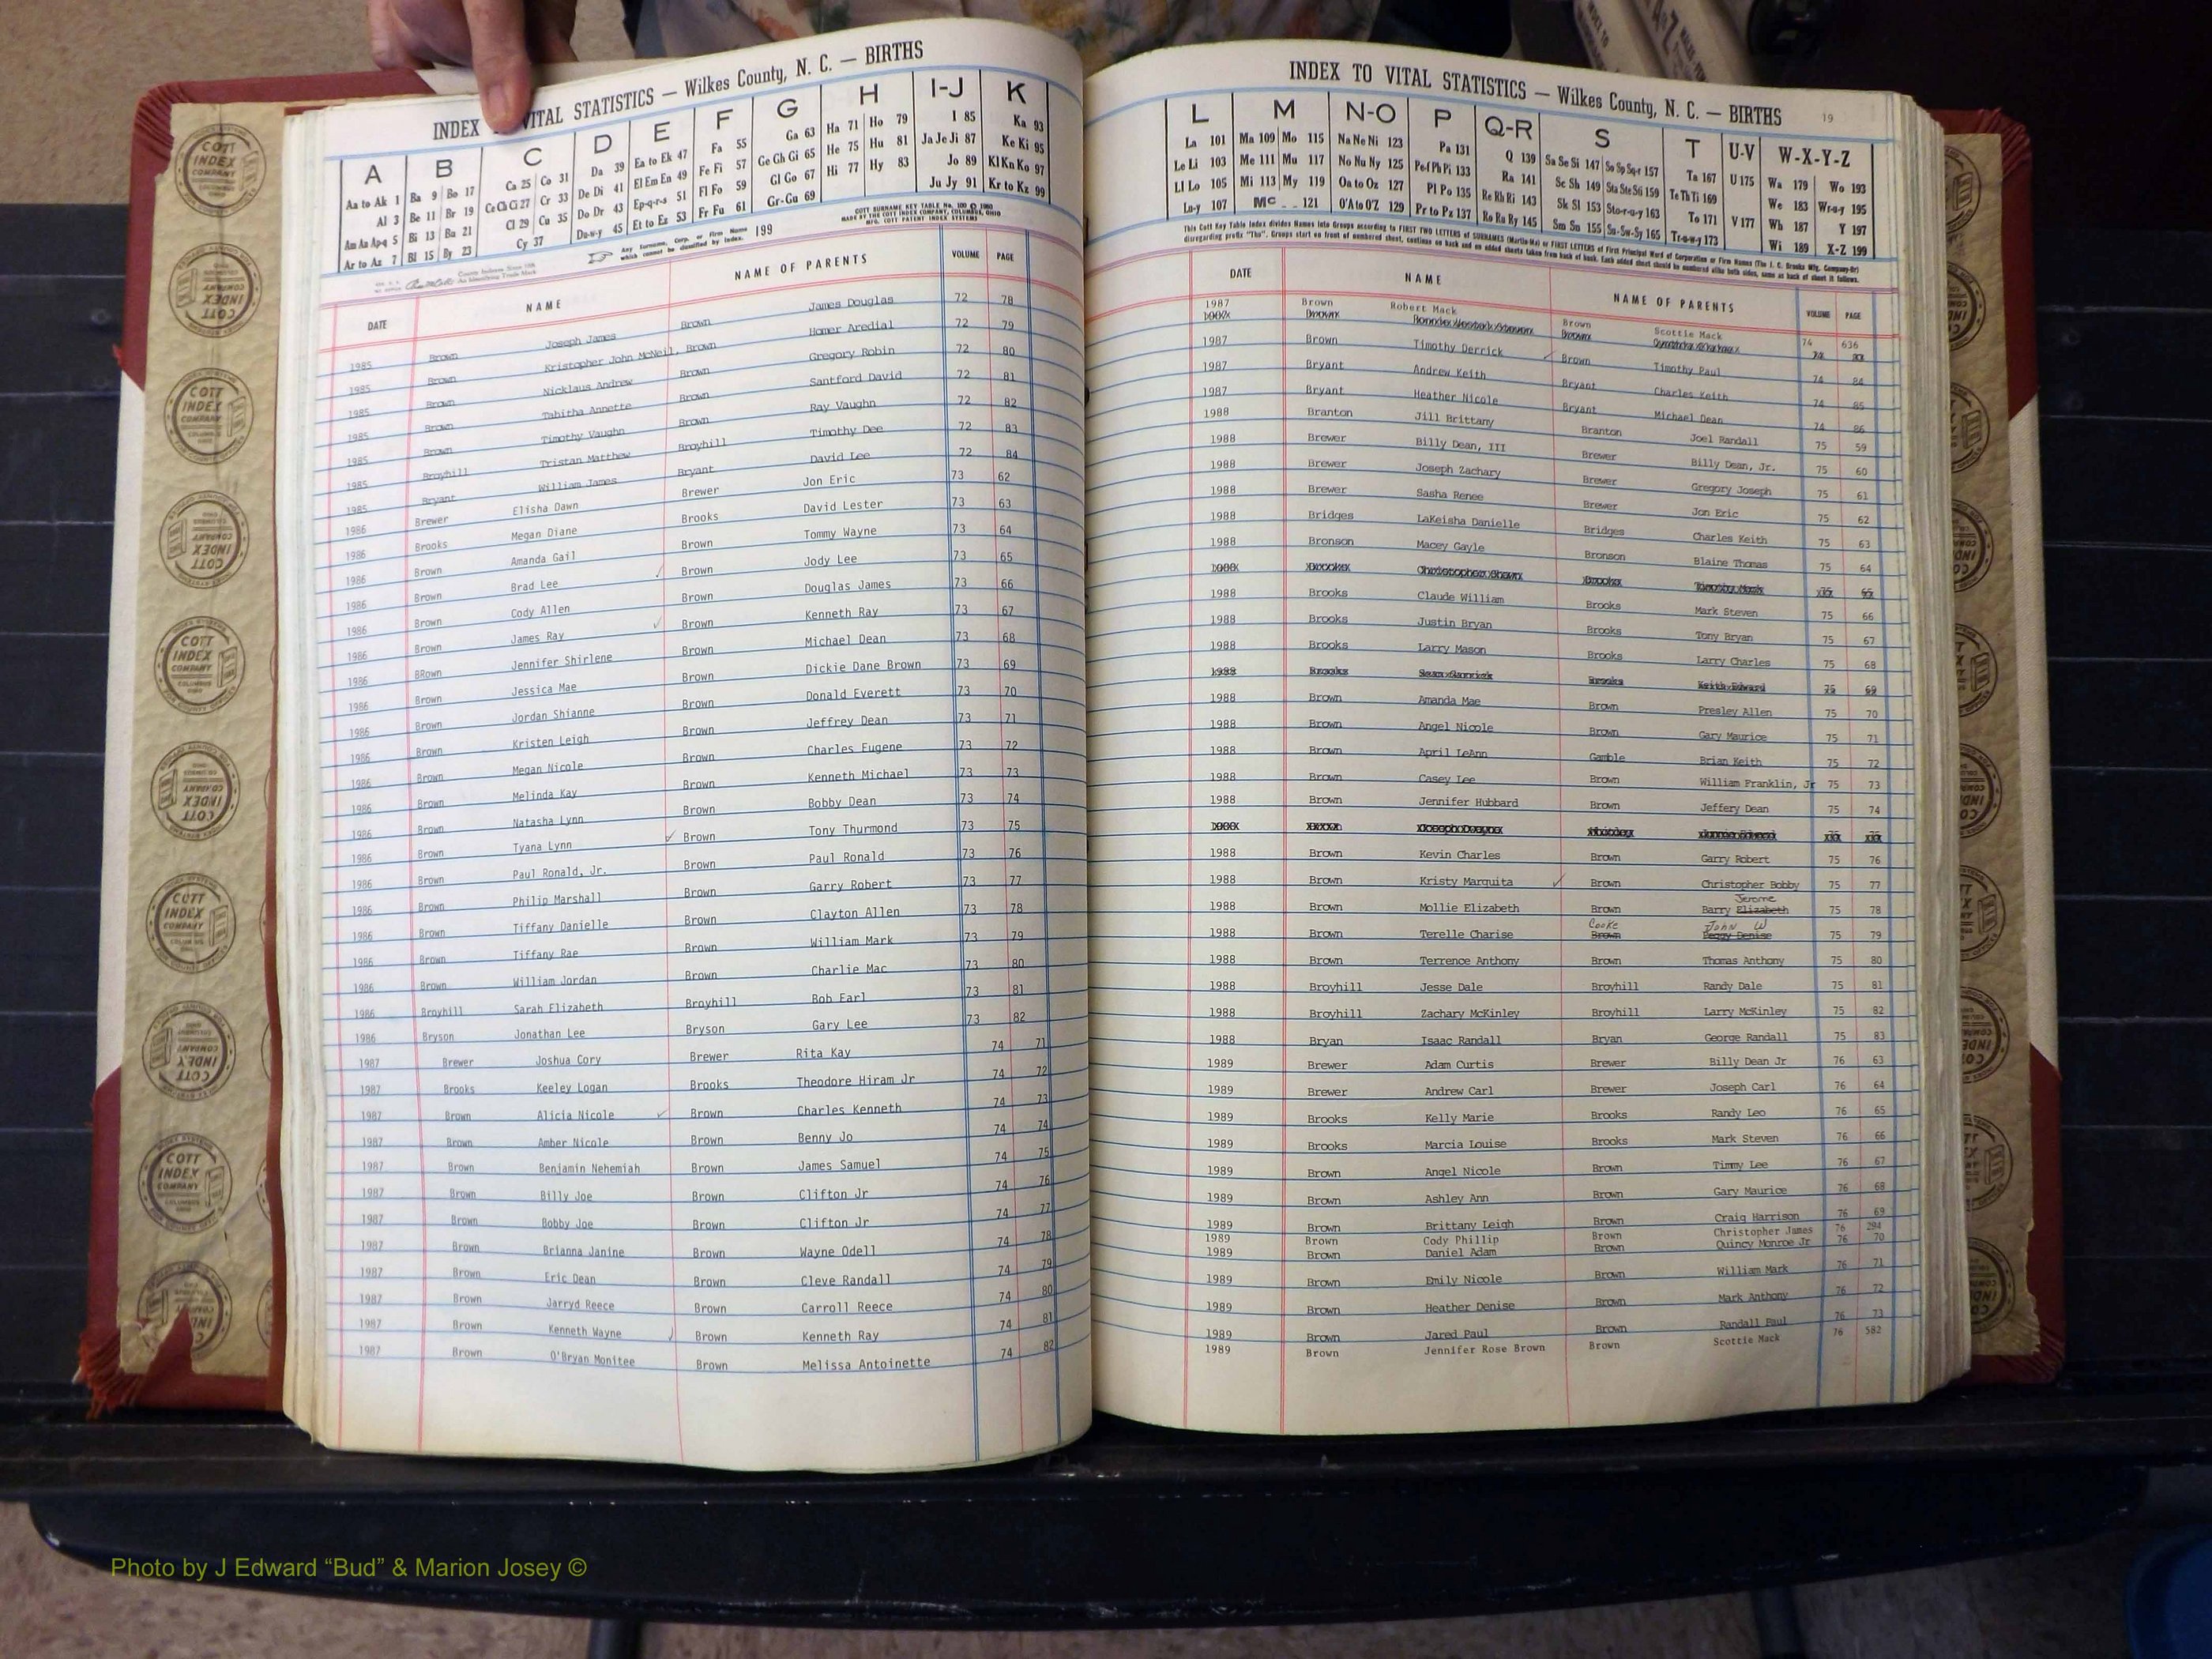 INDEX VITAL STATISTICS — Wilkes County, N. C. — BIRTHS
A B C D E F G H I-J K
Aa to Ak 1 Ba 9 Bo 17 Ca 25 Co 31 Da 39 Ea to Ek 47 Fa 55 Ga 63 Ha 71 Ho 79 I 85 Ka 93
Al 3 Be 11 Br 19 Ce Ch Ci 27 Cr 33 De Di 41 El Em En 49 Fe Fi 57 Ge Gh Gi 65 He 75 Hu 81 Ja Je Ji 87 Ke Ki 95
Am An Ap-q 5 Bi 13 Bu 21 Cl 29 Cu 35 Do Dr 43 Ep-q-r-s 51 Fl Fo 59 Gl Go 67 Hi 77 Hy 83 Jo 89 Kl Kn Ko 97
Ar to Az 7 Bl 15 By 23 Cy 37 Du-w-y 45 Et to Ez 53 Fr Fu 61 Gr-Gu 69 Ju Jy 91 Kr to Kz 99
COTT SURNAME KEY TABLE No. 100 © 1960
MADE BY THE COTT INDEX COMPANY, COLUMBUS, OHIO
MFG. COTT PATENT INDEX SYSTEMS
Any Surname, Corp. or Firm Name which cannot be classified by index. 199
DATE NAME NAME OF PARENTS VOLUME PAGE
1985 Brown Joseph James Brown James Douglas 72 78
1985 Brown Kristopher John McNeil, Brown Homer Aredial 72 79
1985 Brown Nicklaus Andrew Brown Gregory Robin 72 80
1985 Brown Tabitha Annette Brown Santford David 72 81
1985 Brown Timothy Vaughn Brown Ray Vaughn 72 82
1985 Broyhill Tristan Matthew Broyhill Timothy Dee 72 83
1985 Bryant William James Bryant David Lee 72 84
1986 Brewer Elisha Dawn Brewer Jon Eric 73 62
1986 Brooks Megan Diane Brooks David Lester 73 63
1986 Brown Amanda Gail Brown Tommy Wayne 73 64
1986 Brown Brad Lee Brown Jody Lee 73 65
1986 Brown Cody Allen Brown Douglas James 73 66
1986 Brown James Ray Brown Kenneth Ray 73 67
1986 BRown Jennifer Shirlene Brown Michael Dean 73 68
1986 Brown Jessica Mae Brown Dickie Dane Brown 73 69
1986 Brown Jordan Shianne Brown Donald Everett 73 70
1986 Brown Kristen Leigh Brown Jeffrey Dean 73 71
1986 Brown Megan Nicole Brown Charles Eugene 73 72
1986 Brown Melinda Kay Brown Kenneth Michael 73 73
1986 Brown Natasha Lynn Brown Bobby Dean 73 74
1986 Brown Tyana Lynn Brown Tony Thurmond 73 75
1986 Brown Paul Ronald, Jr. Brown Paul Ronald 73 76
1986 Brown Philip Marshall Brown Garry Robert 73 77
1986 Brown Tiffany Danielle Brown Clayton Allen 73 78
1986 Brown Tiffany Rae Brown William Mark 73 79
1986 Brown William Jordan Brown Charlie Mac 73 80
1986 Broyhill Sarah Elizabeth Broyhill Bob Earl 73 81
1986 Bryson Jonathan Lee Bryson Gary Lee 73 82
1987 Brewer Joshua Cory Brewer Rita Kay 74 71
1987 Brooks Keeley Logan Brooks Theodore Hiram Jr 74 72
1987 Brown Alicia Nicole Brown Charles Kenneth 74 73
1987 Brown Amber Nicole Brown Benny Jo 74 74
1987 Brown Benjamin Nehemiah Brown James Samuel 74 75
1987 Brown Billy Joe Brown Clifton Jr 74 76
1987 Brown Bobby Joe Brown Clifton Jr 74 77
1987 Brown Brianna Janine Brown Wayne Odell 74 78
1987 Brown Eric Dean Brown Cleve Randall 74 79
1987 Brown Jarryd Reece Brown Carroll Reece 74 80
1987 Brown Kenneth Wayne Brown Kenneth Ray 74 81
1987 Brown O'Bryan Monitee Brown Melissa Antoinette 74 82
INDEX TO VITAL STATISTICS — Wilkes County, N. C. — BIRTHS 19
L M N-O P Q-R S T U-V W-X-Y-Z
La 101 Ma 109 Mo 115 Na Ne Ni 123 Pa 131 Q 139 Sa Se Si 147 So Sp Sq-r 157 Ta 167 U 175 Wa 179 Wo 193
Le Li 103 Me 111 Mu 117 No Nu Ny 125 Pe-f Ph Pi 133 Ra 141 Sc Sh 149 Sta Ste Sti 159 Te Th Ti 169 We 183 Wr-u-y 195
Ll Lo 105 Mi 113 My 119 Oa to Oz 127 Pl Po 135 Re Rh Ri 143 Sk Sl 153 Sto-r-u-y 163 To 171 V 177 Wh 187 Y 197
Lu-y 107 Mc 121 O'A to O'Z 129 Pr to Pz 137 Ro Ru Ry 145 Sm Sn 155 Su-Sw-Sy 165 Tr-u-w-y 173 Wi 189 X-Z 199
This Cott Key Table Index divides Names into Groups according to FIRST TWO LETTERS of SURNAMES (Martin-Ma) or FIRST LETTERS of First Principal Word of Corporation or Firm Names
disregarding prefix "The". Groups start on front of numbered sheet, continue on back and on added sheets taken from back of book. Each added sheet should be numbered alike both sides, same as back of sheet it follows.
DATE NAME NAME OF PARENTS VOLUME PAGE
1987 Brown Robert Mack Brown Scottie Mack 74 636
1987 Brown Timothy Derrick Brown Timothy Paul 74 84
1987 Bryant Andrew Keith Bryant Charles Keith 74 85
1987 Bryant Heather Nicole Bryant Michael Dean 74 86
1988 Branton Jill Brittany Branton Joel Randall 75 59
1988 Brewer Billy Dean, III Brewer Billy Dean, Jr. 75 60
1988 Brewer Joseph Zachary Brewer Gregory Joseph 75 61
1988 Brewer Sasha Renee Brewer Jon Eric 75 62
1988 Bridges LaKeisha Danielle Bridges Charles Keith 75 63
1988 Bronson Macey Gayle Bronson Blaine Thomas 75 64
1988 Brooks Claude William Brooks Mark Steven 75 66
1988 Brooks Justin Bryan Brooks Tony Bryan 75 67
1988 Brooks Larry Mason Brooks Larry Charles 75 68
1988 Brooks Brooks Keith Edward 75 69
1988 Brown Amanda Mae Brown Presley Allen 75 70
1988 Brown Angel Nicole Brown Gary Maurice 75 71
1988 Brown April LeAnn Gamble Brian Keith 75 72
1988 Brown Casey Lee Brown William Franklin, Jr 75 73
1988 Brown Jennifer Hubbard Brown Jeffery Dean 75 74
1988 Brown Kevin Charles Brown Garry Robert 75 76
1988 Brown Kristy Marquita Brown Christopher Bobby 75 77
Jerome
1988 Brown Mollie Elizabeth Brown Barry Elizabeth 75 78
Cooke John W
1988 Brown Terelle Charise Brown Peggy Denise 75 79
1988 Brown Terrence Anthony Brown Thomas Anthony 75 80
1988 Broyhill Jesse Dale Broyhill Randy Dale 75 81
1988 Broyhill Zachary McKinley Broyhill Larry McKinley 75 82
1988 Bryan Isaac Randall Bryan George Randall 75 83
1989 Brewer Adam Curtis Brewer Billy Dean Jr 76 63
1989 Brewer Andrew Carl Brewer Joseph Carl 76 64
1989 Brooks Kelly Marie Brooks Randy Leo 76 65
1989 Brooks Marcia Louise Brooks Mark Steven 76 66
1989 Brown Angel Nicole Brown Timmy Lee 76 67
1989 Brown Ashley Ann Brown Gary Maurice 76 68
1989 Brown Brittany Leigh Brown Craig Harrison 76 69
1989 Brown Cody Phillip Brown Christopher James 76 294
1989 Brown Daniel Adam Brown Quincy Monroe Jr 76 70
1989 Brown Emily Nicole Brown William Mark 76 71
1989 Brown Heather Denise Brown Mark Anthony 76 72
1989 Brown Jared Paul Brown Randall Paul 76 73
1989 Brown Jennifer Rose Brown Brown Scottie Mack 76 582
Photo by J Edward “Bud” & Marion Josey ©